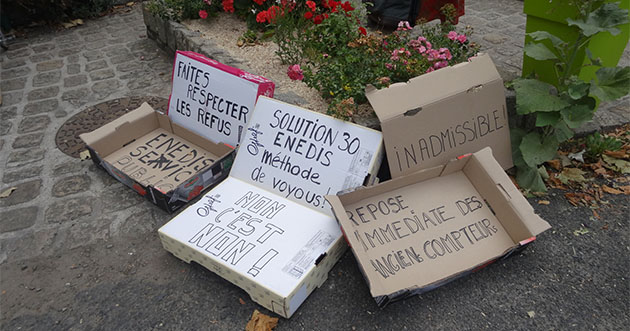 FAITES
RESPECTER
LES REFUS !
ENEDIS
SERVICE
SOLUTION 30
ENEDIS
méthode
de voyous !
INADMISSIBLE !
NON
C'EST
NON !
REPOSE
IMMEDIATE DES
ANCIENS COMPTEURS